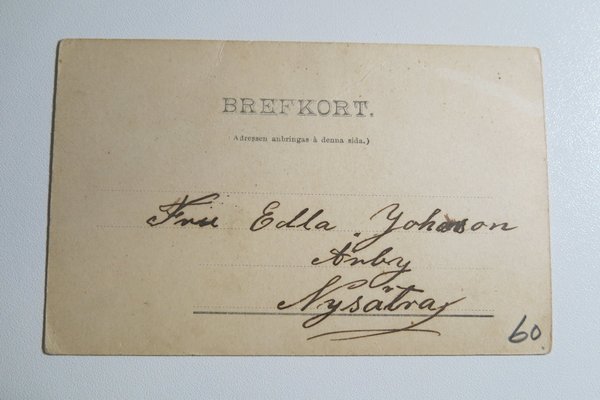 BREFKORT.
Adressen anbringas å denna sida.)
Fru Edla Johnson
Årby
Nysätra
60